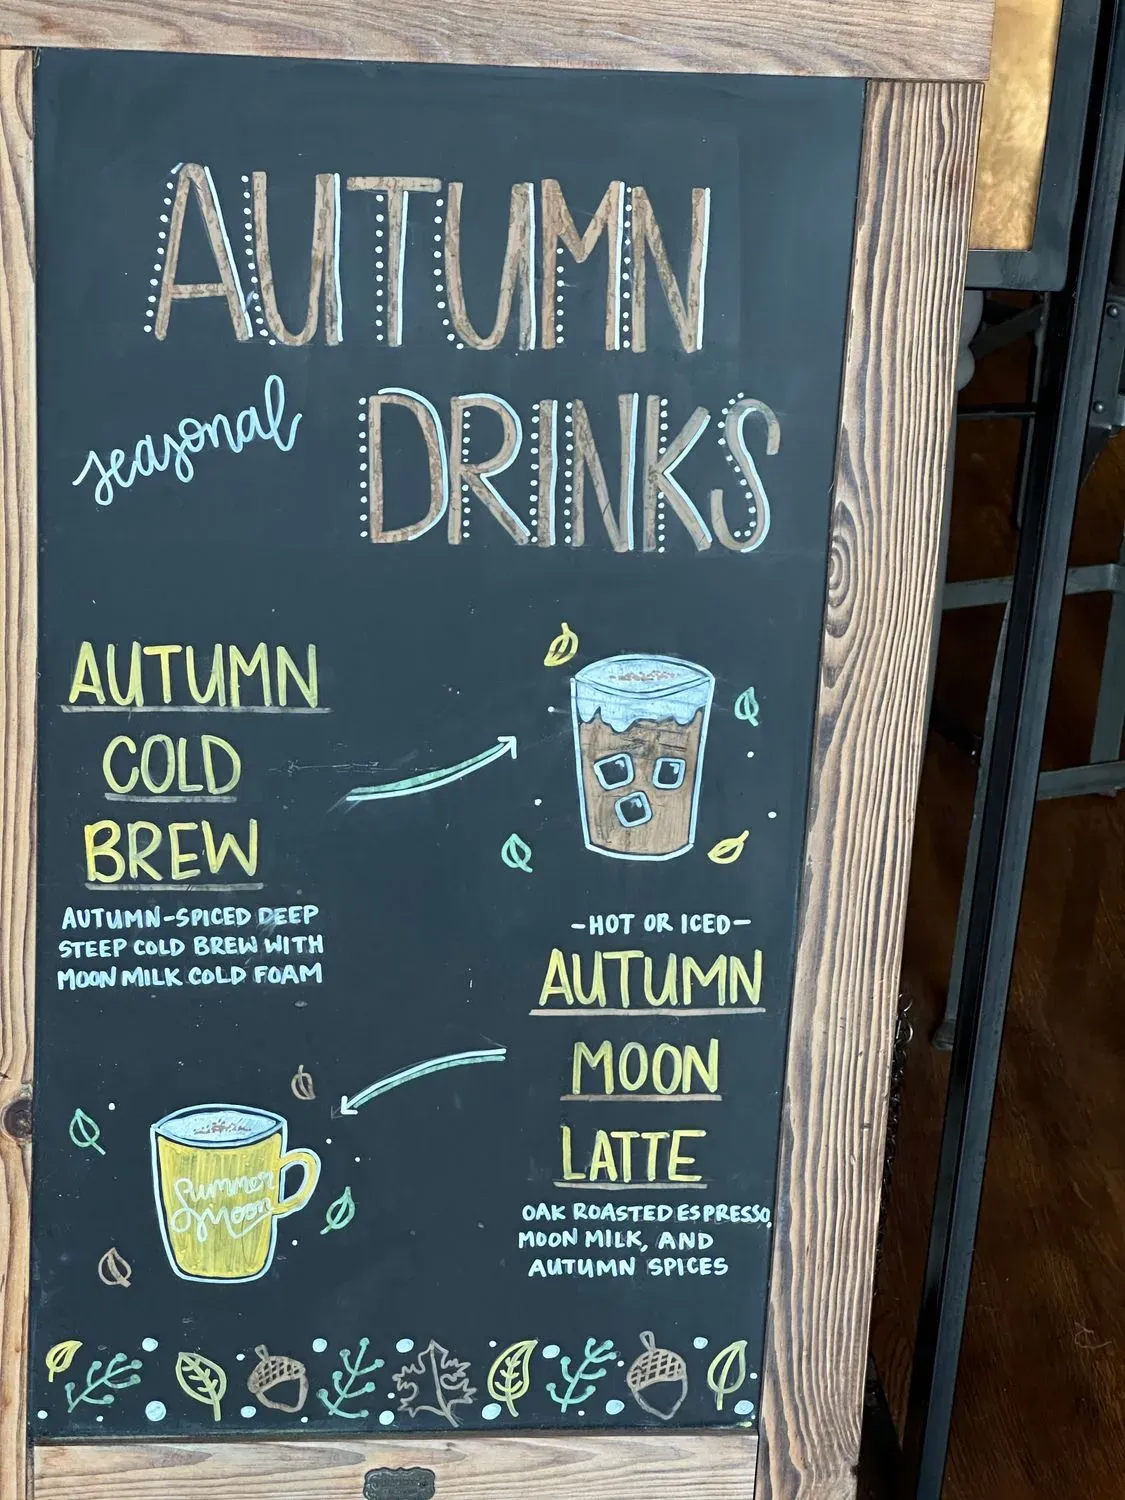 AUTUMN
seasonal DRINKS
AUTUMN
COLD
BREW
AUTUMN-SPICED DEEP
STEEP COLD BREW WITH
MOON MILK COLD FOAM
-HOT OR ICED-
AUTUMN
MOON
LATTE
OAK ROASTED ESPRESSO,
MOON MILK, AND
AUTUMN SPICES
Summer
Moon